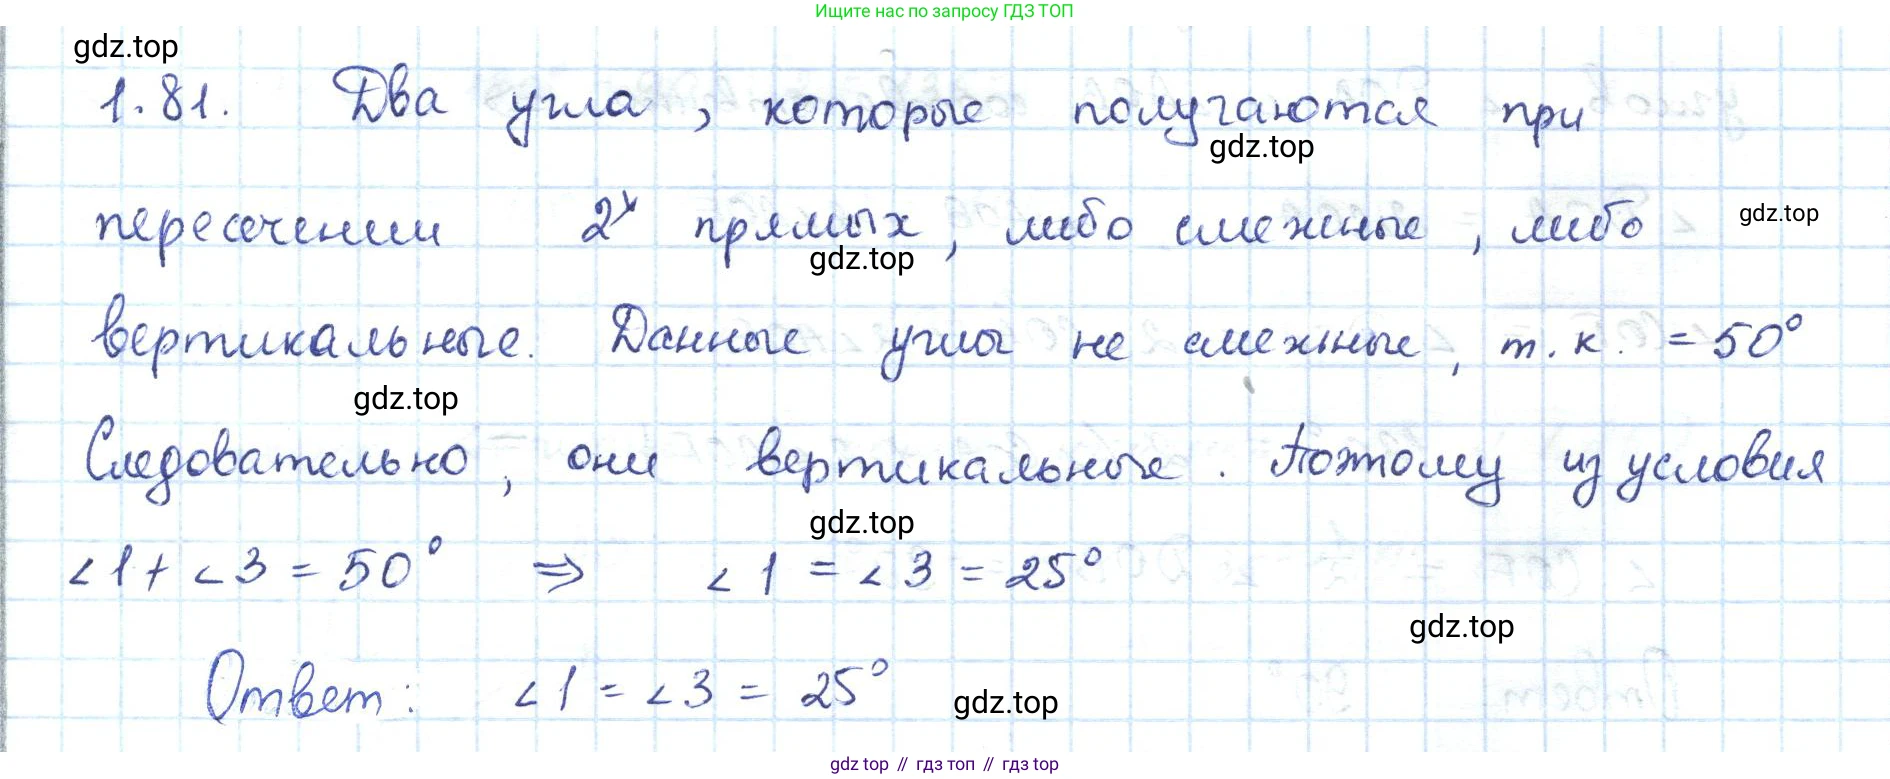 Ищите нас по запросу ГДЗ ТОП
gdz.top
1.81. Два угла, которые получаются при
gdz.top
пересечении 2х прямых, либо смежные, либо
gdz.top
gdz.top
вертикальные. Данные углы не смежные, т.к. = 50°
gdz.top
Следовательно, они вертикальные. Поэтому из условия
gdz.top
∠1 + ∠3 = 50° ⇒ ∠1 = ∠3 = 25°
gdz.top
Ответ: ∠1 = ∠3 = 25°
gdz.top
gdz top // гдз топ // гдз top